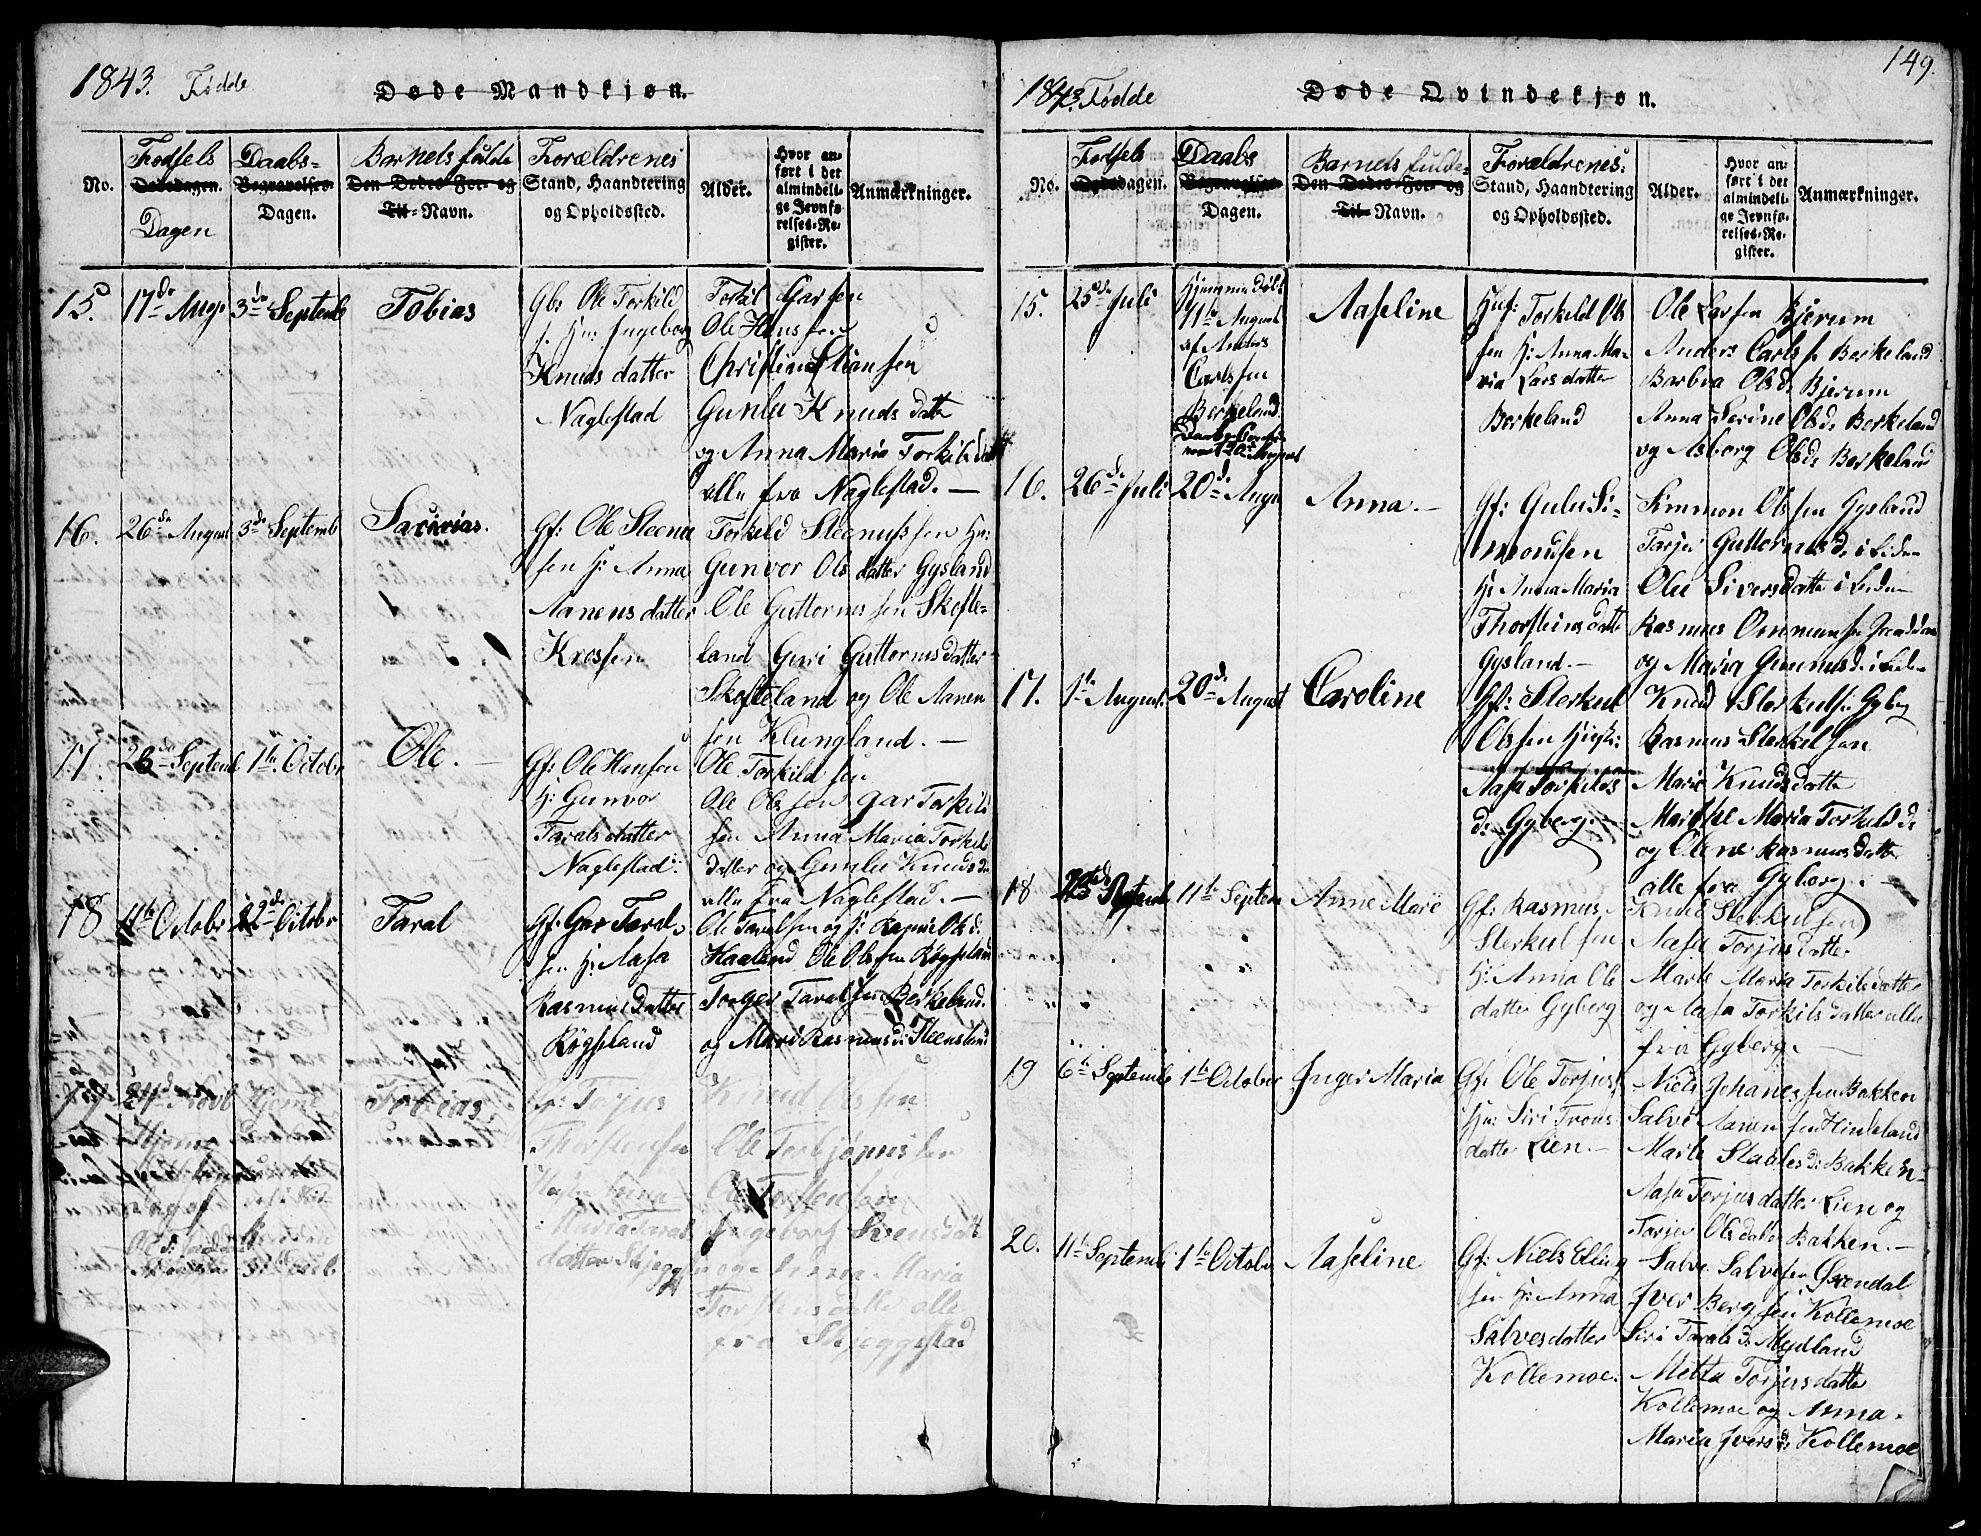 1843. Fødde
Døde Mandkjøn.
No.
Fødsels
Dødsdagen.
Dagen
Daabs-
Begravelses-
Dagen.
Barnets fulde
Den Dødes For- og
Til-Navn.
Forældrenes
Stand, Haandtering
og Opholdssted.
Alder.
Hvor an-
ført i det
almindeli-
ge Jevnfø-
relses-Re-
gister.
Anmærkninger.
15. 17de Aug. 3de Septemb Tobias
Gbs Ole Torkild
s. Hu: Ingeborg
Knuds datter
Naglestad
Torkil Garsen
Ole Hanssen
Christian Stiansen
Gunlu Knuds datt
og Anna Maria Torkilsdatt
alle fra Naglestad. —
16. 26de August 3de Septemb Sacarias.
Gf: Ole Steena
sen H: Anna
Aanensdatter
Krossen
Torkeld Steenussen
Gunvor Olsdatter Gysland
Ole Guttormssen Skofte-
land Guri Guttormsdatter
Skofteland og Ole Aanen
sen Klungland. —
17. 26de Septemb 1te Octobr Ole. —
Gf: Ole Hansen
H: Gunvor
Taralsdatter
Naglestad:
Ole Torkildsen
Ole Olssen Gar Torkils
sen Anna Maria Torkils
datter og Gunlu Knudsd
alle fra Naglestad. —
18 11te Octobr 22de Octobr Taral
Gf: Gar Tarals
sen H: Aasa
Rasmusdatter
Røgseland
Ole Taralsen og H: Olsd:
Haaland Ole Olssen Røgseland
Torger Taralssen Berkeland
og Mari Rasmusd: Steensland
19 24de Novb Hjeme Tobias
Torjus
Thorstensen
Anna
Maria Tarals
datter Skjegge
Knud Olssen
Ole Torbjørnsen
Ole Torstensen
Ingeborg Svensdatt
og Maria
Torstensdatte alle
fra Skjeggestad
149.
1843. Fødde
Døde Qvindekjøn.
No.
Fødsels
Dødsdagen.
Daabs
Begravelses-
Dagen.
Barnets fulde-
Den Dødes For- og
Til-Navn.
Forældrenes
Stand, Haandtering
og Opholdssted.
Alder.
Hvor an-
ført i det
almindeli-
ge Jevnfø-
relses-Re-
gister.
Anmærkninger.
15. 25de Juli
Hjemmedøbt
11te August
af Anders
Carlssen
Berkeland
20de August
Aaseline
Huf: Torkeld Ols
sen H: Anna Ma-
ria Larsdatter
Berkeland
Ole Larsen Bjerum
Anders Carls s. Berkeland
Barbra Olsd: Bjerum
Anna Serine Olsd: Berkeland
og Asborg Olsd: Berkeland
16. 26de Juli 20de Augu Anna. —
Gf: Gulu Si-
mondsen
H: Anna Maria
Thorsteinsdatte
Gysland. —
Simmon Olssen Gysland
Tarjei Guttormsd: i Liden
Olu Siversdatte i Liden
Rasmus Ommunsen
og Maria Gunnusd: i Liden
17. 1te August. 20de August Caroline
Gf: Sterkul
Olssen
Aasa Torkilds
d: Gyberg. —
Knud Sterkuls: Gyberg
Rasmus Sterkelsen
Mari Knudsdatte
Marthe Maria Torkild d:
og Olene Rasmusdatte
alle fra Gyberg. —
18 11te Septem Anne Marie
Gf: Rasmus
Sterkulsen
H: Anna Ols
datter Gyberg
Knud Sterkulsen
Aasa Torjusdatter
Marte Maria Torkilsdatter
og Aasa Torkilsdatter alle
fra Gyberg. —
19 6te Septemb 1te October Inger Maria
Gf: Ole Torjus
Hu: Siri Trons
datte Lien. —
Niels Johanessen Bakken
Salve Aanensen Hindeland
Marte Staalesd: Bakken
Aasa Torjusdatter Lien og
Tarjer Olsdatte Bakken. —
20. 11te Septemb 1te Octobr Aaseline
Gf: Niels Elling
sen H: Anna
Salvesdatter
Kollemoe:
Salve Salvesen Ovendal
Iver Bergsen Kollemoe
Siri Taralsd: Mydland
Metta Torjusdatte
Kollemoe og Anna
Maria Iversd: Kollemoe